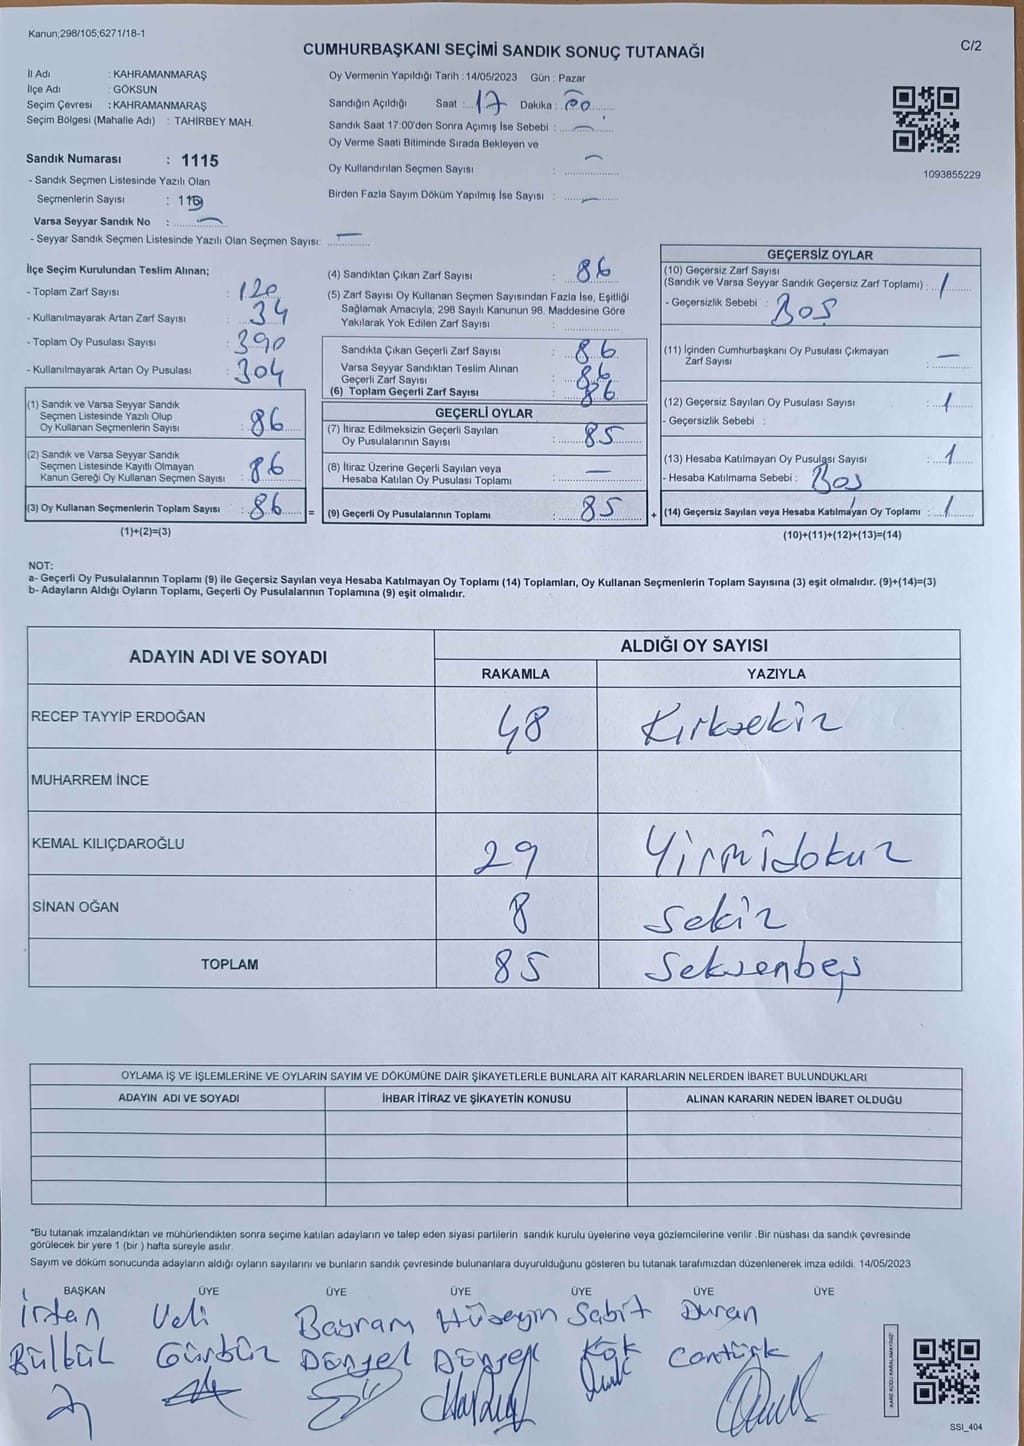 Kanun;298/105;6271/18-1
CUMHURBAŞKANI SEÇİMİ SANDIK SONUÇ TUTANAĞI
C/2
İl Adı : KAHRAMANMARAŞ
İlçe Adı : GÖKSUN
Seçim Çevresi : KAHRAMANMARAŞ
Seçim Bölgesi (Mahalle Adı) : TAHİRBEY MAH.
Sandık Numarası : 1115
- Sandık Seçmen Listesinde Yazılı Olan
Seçmenlerin Sayısı :
Varsa Seyyar Sandık No : —
- Seyyar Sandık Seçmen Listesinde Yazılı Olan Seçmen Sayısı: —
Oy Vermenin Yapıldığı Tarih : 14/05/2023 Gün : Pazar
Sandığın Açıldığı Saat : 17 Dakika : 00
Sandık Saat 17:00'den Sonra Açımış İse Sebebi : —
Oy Verme Saati Bitiminde Sırada Bekleyen ve
Oy Kullandırılan Seçmen Sayısı : —
Birden Fazla Sayım Döküm Yapılmış İse Sayısı : —
1093855229
İlçe Seçim Kurulundan Teslim Alınan;
- Toplam Zarf Sayısı : 120
- Kullanılmayarak Artan Zarf Sayısı : 34
- Toplam Oy Pusulası Sayısı : 390
- Kullanılmayarak Artan Oy Pusulası : 304
(1) Sandık ve Varsa Seyyar Sandık
Seçmen Listesinde Yazılı Olup
Oy Kullanan Seçmenlerin Sayısı : 86
(2) Sandık ve Varsa Seyyar Sandık
Seçmen Listesinde Kayıtlı Olmayan
Kanun Gereği Oy Kullanan Seçmen Sayısı : 86
(3) Oy Kullanan Seçmenlerin Toplam Sayısı : 86 =
(1)+(2)=(3)
(4) Sandıktan Çıkan Zarf Sayısı : 86
(5) Zarf Sayısı Oy Kullanan Seçmen Sayısından Fazla İse, Eşitliği
Sağlamak Amacıyla; 298 Sayılı Kanunun 98. Maddesine Göre
Yakılarak Yok Edilen Zarf Sayısı :
Sandıkta Çıkan Geçerli Zarf Sayısı : 86
Varsa Seyyar Sandıktan Teslim Alınan
Geçerli Zarf Sayısı : 86
(6) Toplam Geçerli Zarf Sayısı : 86
GEÇERLİ OYLAR
(7) İtiraz Edilmeksizin Geçerli Sayılan
Oy Pusulalarının Sayısı : 85
(8) İtiraz Üzerine Geçerli Sayılan veya
Hesaba Katılan Oy Pusulası Toplamı : —
(9) Geçerli Oy Pusulalarının Toplamı : 85 +
GEÇERSİZ OYLAR
(10) Geçersiz Zarf Sayısı
(Sandık ve Varsa Seyyar Sandık Geçersiz Zarf Toplamı) : 1
- Geçersizlik Sebebi : Boş
(11) İçinden Cumhurbaşkanı Oy Pusulası Çıkmayan
Zarf Sayısı : —
(12) Geçersiz Sayılan Oy Pusulası Sayısı : 1
- Geçersizlik Sebebi :
(13) Hesaba Katılmayan Oy Pusulası Sayısı : 1
- Hesaba Katılmama Sebebi : Boş
(14) Geçersiz Sayılan veya Hesaba Katılmayan Oy Toplamı : 1
(10)+(11)+(12)+(13)=(14)
NOT:
a- Geçerli Oy Pusulalarının Toplamı (9) ile Geçersiz Sayılan veya Hesaba Katılmayan Oy Toplamı (14) Toplamları, Oy Kullanan Seçmenlerin Toplam Sayısına (3) eşit olmalıdır. (9)+(14)=(3)
b- Adayların Aldığı Oyların Toplamı, Geçerli Oy Pusulalarının Toplamına (9) eşit olmalıdır.
ADAYIN ADI VE SOYADI
ALDIĞI OY SAYISI
RAKAMLA YAZIYLA
RECEP TAYYİP ERDOĞAN 48 Kırksekiz
MUHARREM İNCE
KEMAL KILIÇDAROĞLU 29 Yirmidokuz
SİNAN OĞAN 8 Sekiz
TOPLAM 85 Seksenbeş
OYLAMA İŞ VE İŞLEMLERİNE VE OYLARIN SAYIM VE DÖKÜMÜNE DAİR ŞİKAYETLERLE BUNLARA AİT KARARLARIN NELERDEN İBARET BULUNDUKLARI
ADAYIN ADI VE SOYADI İHBAR İTİRAZ VE ŞİKAYETİN KONUSU ALINAN KARARIN NEDEN İBARET OLDUĞU
*Bu tutanak imzalandıktan ve mühürlendikten sonra seçime katılan adayların ve talep eden siyasi partilerin sandık kurulu üyelerine veya gözlemcilerine verilir .Bir nüshası da sandık çevresinde
görülecek bir yere 1 (bir ) hafta süreyle asılır.
Sayım ve döküm sonucunda adayların aldığı oyların sayılarını ve bunların sandık çevresinde bulunanlara duyurulduğunu gösteren bu tutanak tarafımızdan düzenlenerek imza edildi. 14/05/2023
BAŞKAN ÜYE ÜYE ÜYE ÜYE ÜYE ÜYE
İrfan Veli Bayram Hüseyin Sabit Duran
Bülbül Gürbüz Döngel Döngel Kök Cantürk
KARE KODU KARALAMAYINIZ!
SSI_404